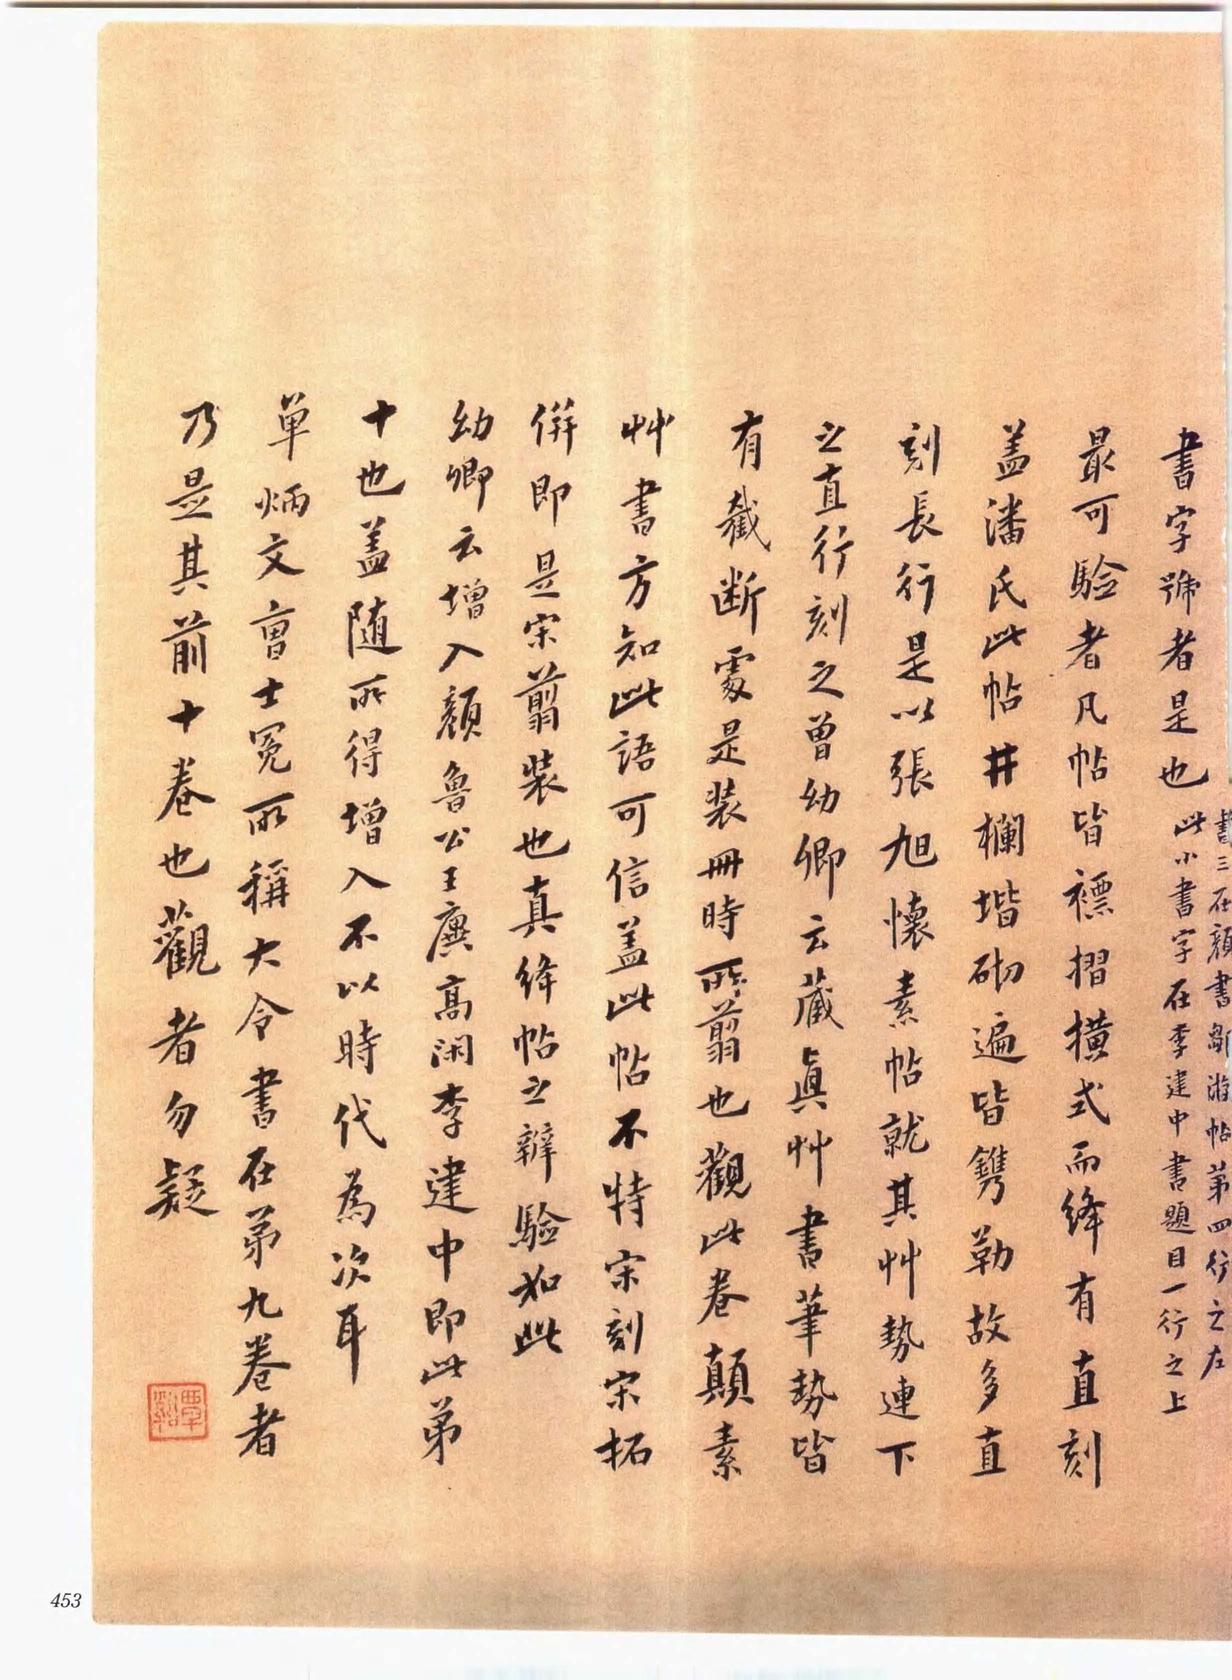 書字號者是也
書三在顏書鄒游帖第四行之左
此小書字在李建中書題目一行之上
最可驗者凡帖皆褾摺橫式而絳有直刻
盖潘氏此帖井欄堦砌遍皆鐫勒故多直
刻長行是以張旭懷素帖就其艸勢連下
之直行刻之曾幼卿云藏眞艸書筆勢皆
有截断處是装冊時所翦也觀此卷顛素
艸書方知此語可信盖此帖不特宋刻宋拓
併即是宋翦装也真絳帖之辯驗如此
幼卿云增入顏魯公王廙高閑李建中即此弟
十也盖随所得增入不以時代為次耳
单炳文曹士冕所稱大令書在弟九卷者
乃是其前十卷也觀者勿疑
覃谿
453